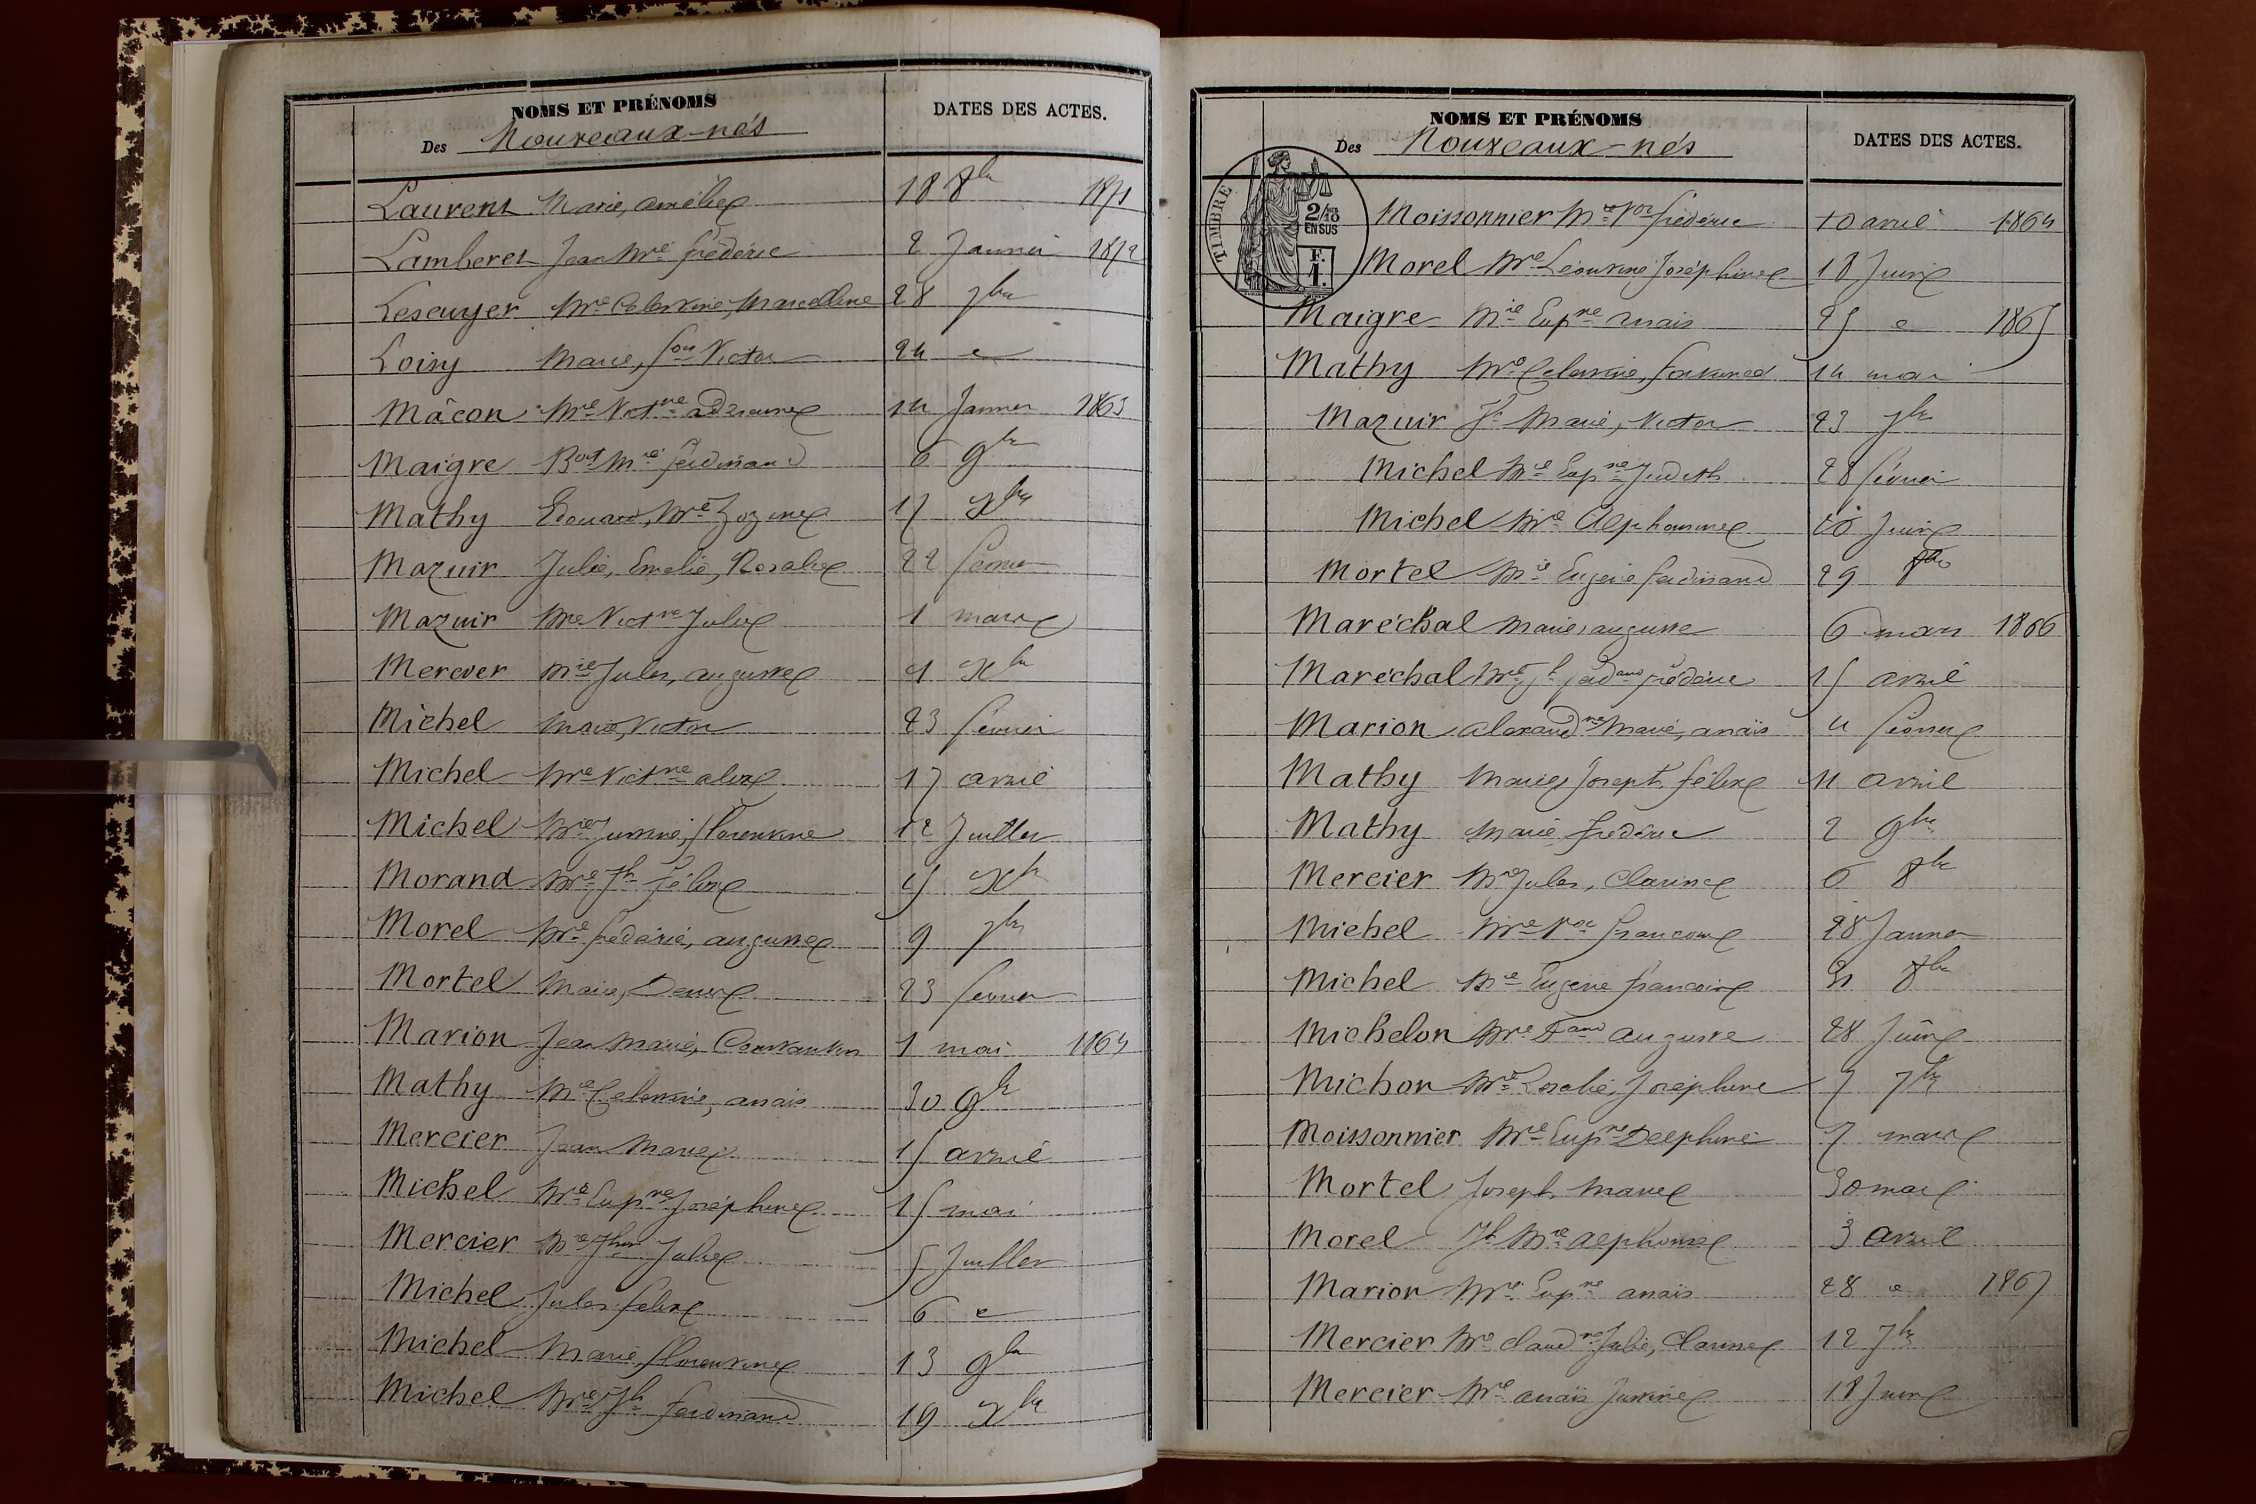 NOMS ET PRÉNOMS
DATES DES ACTES.
Des Nouveaux-nés
Laurent Marie, amélie 18 8bre 1871
Lamberet Jean Mrie fréderic 2 Janvier 1872
Lescuyer Mrie Celestine, Marcelline 28 7bre
Loisy Marie, Victor 24 e
Mâcon Mrie Victne adrienne 14 Janvier 1863
Maigre Mrie ferdinand 6 9bre
Mathy Edouard, Mrie Zozime 17 Xbre
Mazuir Julie, Emelie, Rosalie 22 fevrier
Mazuir Mrie Victne Julie 1 mars
Mercier Mie Jules, auguste Xbre
Michel Marie, Victor 23 fevrier
Michel Mrie Victne alix 17 avril
Michel Mrie Justine, florentine 12 Juillet
Morand Mrie Jh félix Xbre
Morel Mrie frederic, auguste 9 7bre
Mortel Marie, Denise 23 fevrier
Marion Jean Marie, Constantin 1 mai 1864
Mathy Mie Celestine, anais 30 9bre
Mercier Jean Marie 15 avril
Michel Mrie Eupne Joséphine 15 mai
Mercier Mrie Julie 5 Juillet
Michel Jules felix 6 e
Michel Marie florentine 13 9bre
Michel Mrie Jh ferdinand 19 Xbre
NOMS ET PRÉNOMS
DATES DES ACTES.
Des Nouveaux-nés
TIMBRE
2/10 EN SUS
F. 1.
Moissonnier Mrie Vor fréderic 10 avril 1864
Morel Mrie Léontine Joséphine 18 Juin
Maigre Mie Eupne anais 25 e 1865
Mathy Mrie Celestine, fortunée 14 mai
Mazuir Jh Marie, Victor 23 7bre
Michel Mie Eupne Judith 28 fevrier
Michel Mrie Alphonsine Juin
Mortel Mie Eugene ferdinand 29 8bre
Maréchal Marie, auguste 6 mars 1866
Maréchal Mrie Jh ferdand fréderic 15 avril
Marion alexandne Marie, anaïs 4 fevrier
Mathy Marie Joseph félix 11 avril
Mathy Marie fréderic 2 9bre
Mercier Mie Jules, Clarisse 6 8bre
Michel Mrie francois 28 Janvier
Michel Mie Eugenie françoise 21 8bre
Michelon Mrie auguste 28 Juin
Michon Mrie Rosalie, Joséphine 7 7bre
Moissonnier Mrie Eupne Delphine 7 mars
Mortel Joseph Marie 30 mars
Morel Jh Mrie alphonse 3 avril
Marion Mrie Eupne anais 28 e 1867
Mercier Mrie claudne Julie, Clarisse 12 7bre
Mercier Mrie anaïs Justine 18 Juin